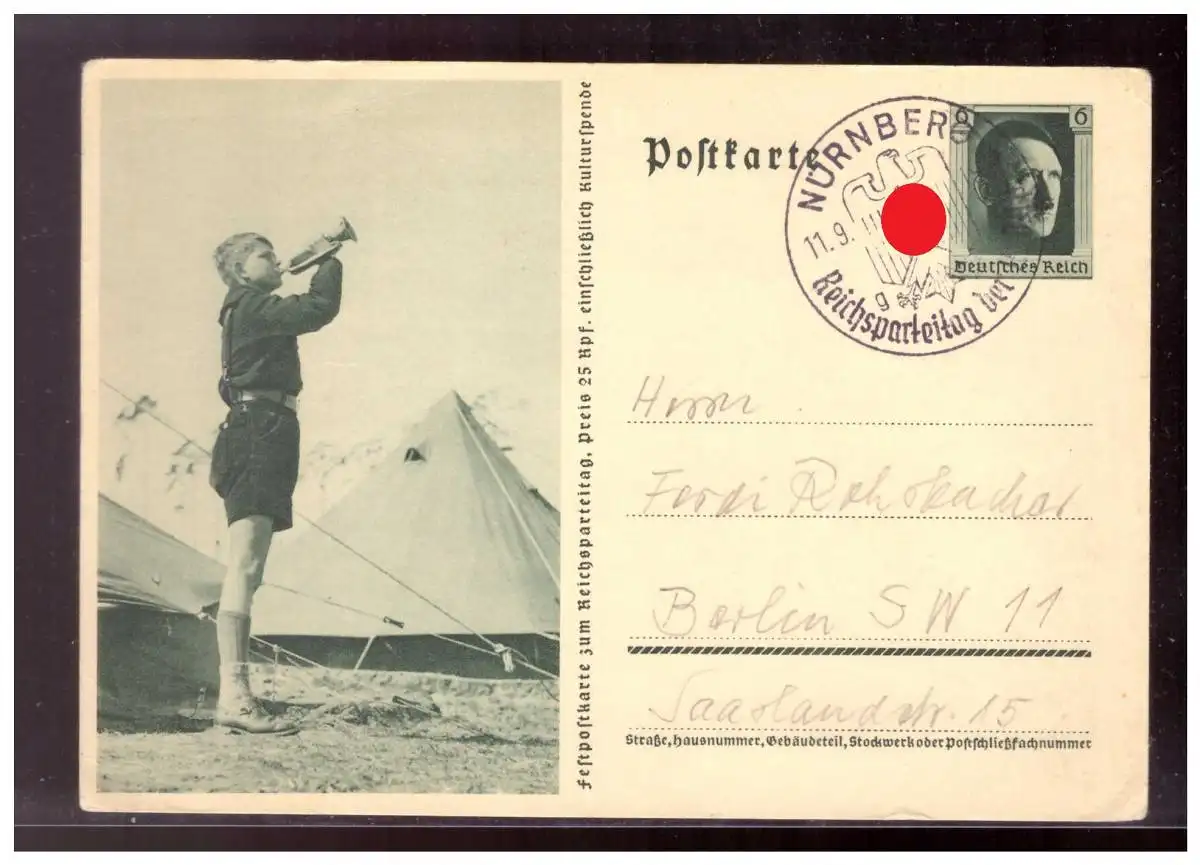 Festpostkarte zum Reichsparteitag, Preis 25 Rpf. einschließlich Kulturspende
Postkarte
NÜRNBERG
11.9.
g
Reichsparteitag der
6 6
Deutsches Reich
Herrn
Ferdi
Berlin SW 11
Saarlandstr. 15
Straße, Hausnummer, Gebäudeteil, Stockwerk oder Postschließfachnummer